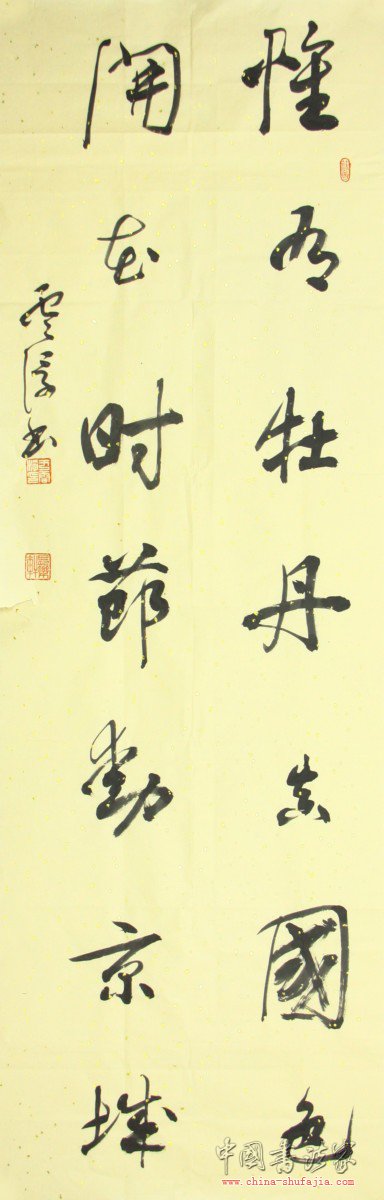 惟有牡丹真國色
開花时節動京城
雲淳书
中國書法家
www.china-shufajia.com